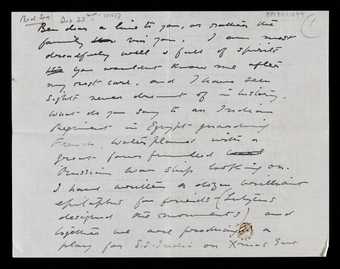 Red Sea Dec 23rd
Ben dear a line to you, or rather the
family via you. I am most
dreadfully well & full of spirits
You wouldnt know me after
my rest cure. and I have seen
sights never dreamt of in history.
What do you say to an Indian
Regiment in Egypt guarding
French water planes with a
great four funnelled
Russian War ship looking on.
I have written a dozen brilliant
epitaphs for friends (Lutyens
designed the monuments) and
together we are producing a
play for S.S. India on Xmas Eve